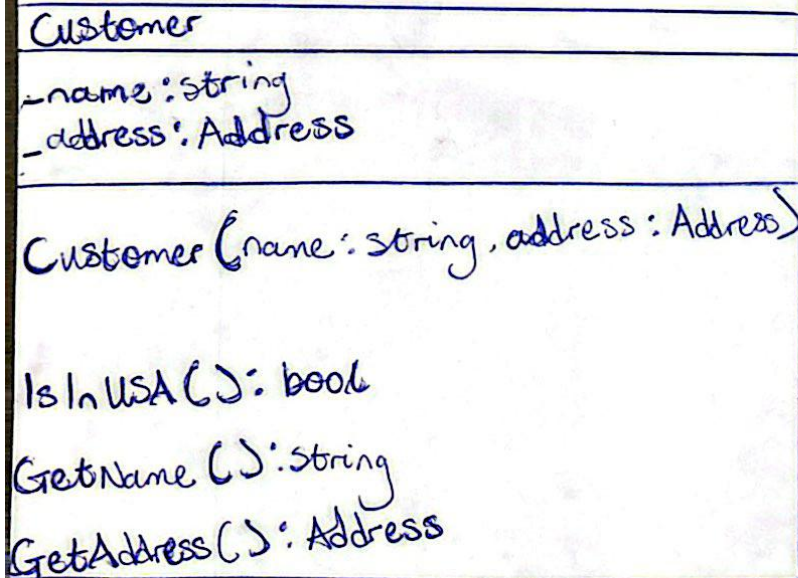 Customer
_name : string
_address : Address
Customer (name : string, address : Address)
IsInUSA() : bool
GetName() : string
GetAddress() : Address